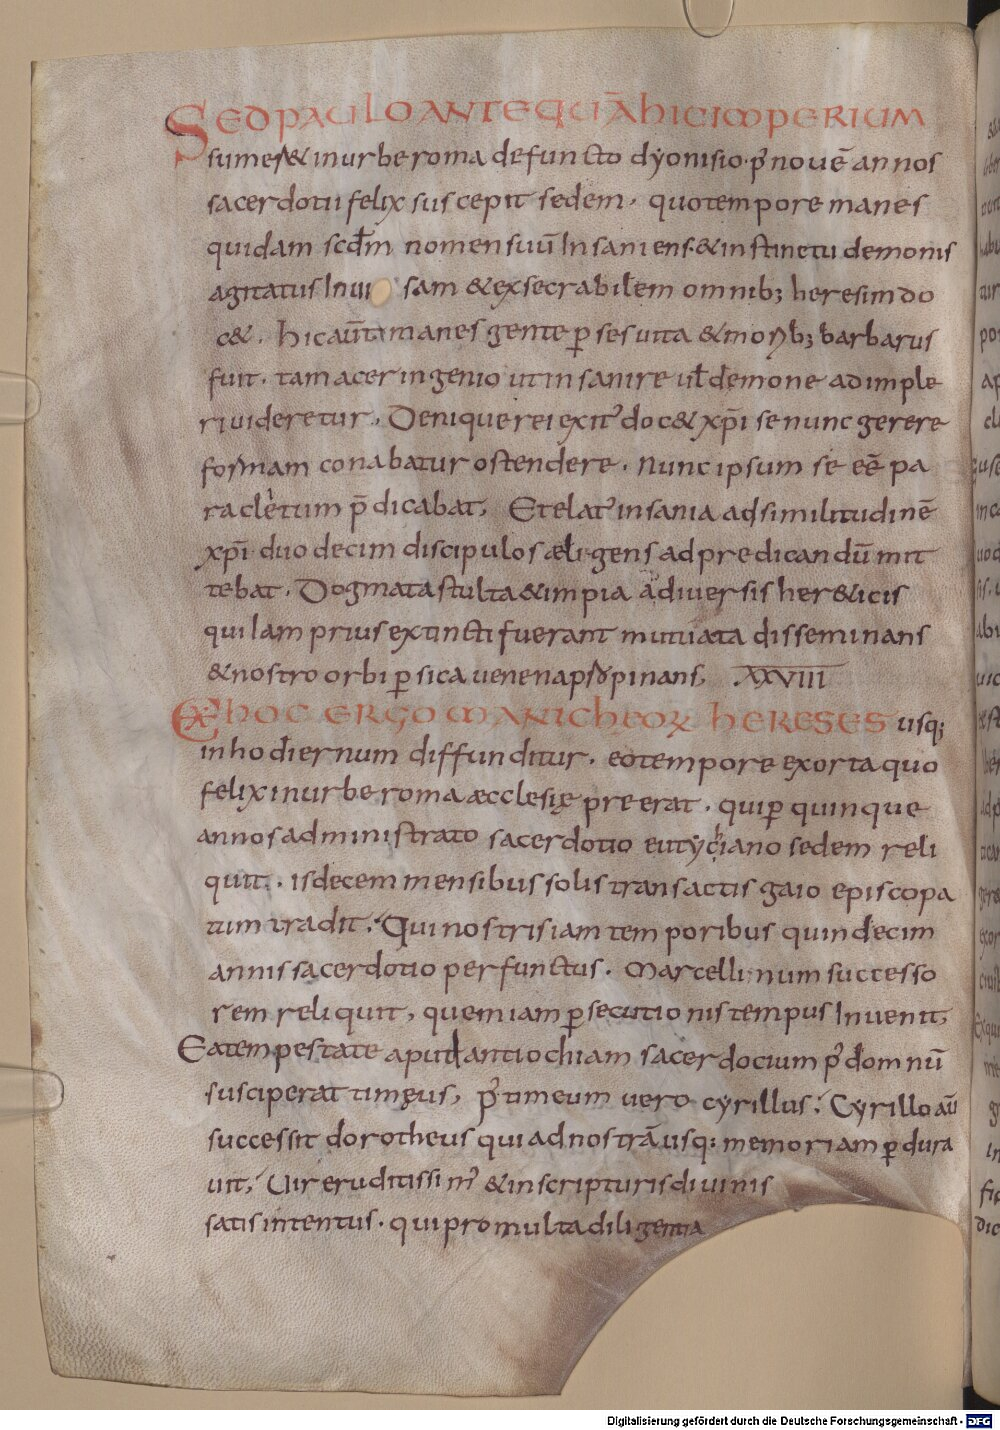 SED PAULO ANTE QUĀ HIC IMPERIUM
sumer& in urbe roma defuncto dyonisio. p' nouē annos
sacerdotii felix suscepit sedem. quo tempore manes
quidam scdm̄ nomen suū Insaniens. & instinctu demonis
agitatus Inui sam & exsecrabilem omnib; heresim do
c&. hic aūt manes gente p̱ ses uita & morib; barbarus
fuit. tam acer ingenio ut insanire ul̄ demone adimple
ri uideretur. Denique rei exit' doc& xp̄i se nunc gerere
formam conabatur ostendere. Nunc ipsum se eē pa
racletum p̄dicabat, Et elat' insania ad similitudinē
xp̄i duodecim discipulos æligens ad predicandū mit
tebat. Dogmata stulta & impia a diuersis her&icis
qui Iam prius extincti fuerant mutuata disseminans
& nostro orbi p̱sica uenena p̱ propinans, XXVIII
EX HOC ERGO MANICHEORX HERESES usq;
in hodiernum diffunditur. eo tempore exorta quo
felix in urbe roma æcclesię preerat. qui p̱ quinque
annos administrato sacerdotio eutychiano sedem reli
quit. is decem mensibus solis transactis gaio episcopa
tum tradit, Qui nostris iam temporibus quindecim
annis sacerdotio perfunctus. Marcellinum successo
rem reliquit, quem iam p̱secutionis tempus Inuenit,
Ea tempestate aput antiochiam sacerdocium p' domnū
susciperat timęus, p' timeum uero cyrillus, Cyrillo aū
successit dorotheus qui ad nostrā usq; memoriam p̱dura
uit, Uir eruditissim' & in scripturis diuinis
satis intentus. qui pro multa diligentia
Digitalisierung gefördert durch die Deutsche Forschungsgemeinschaft - DFG